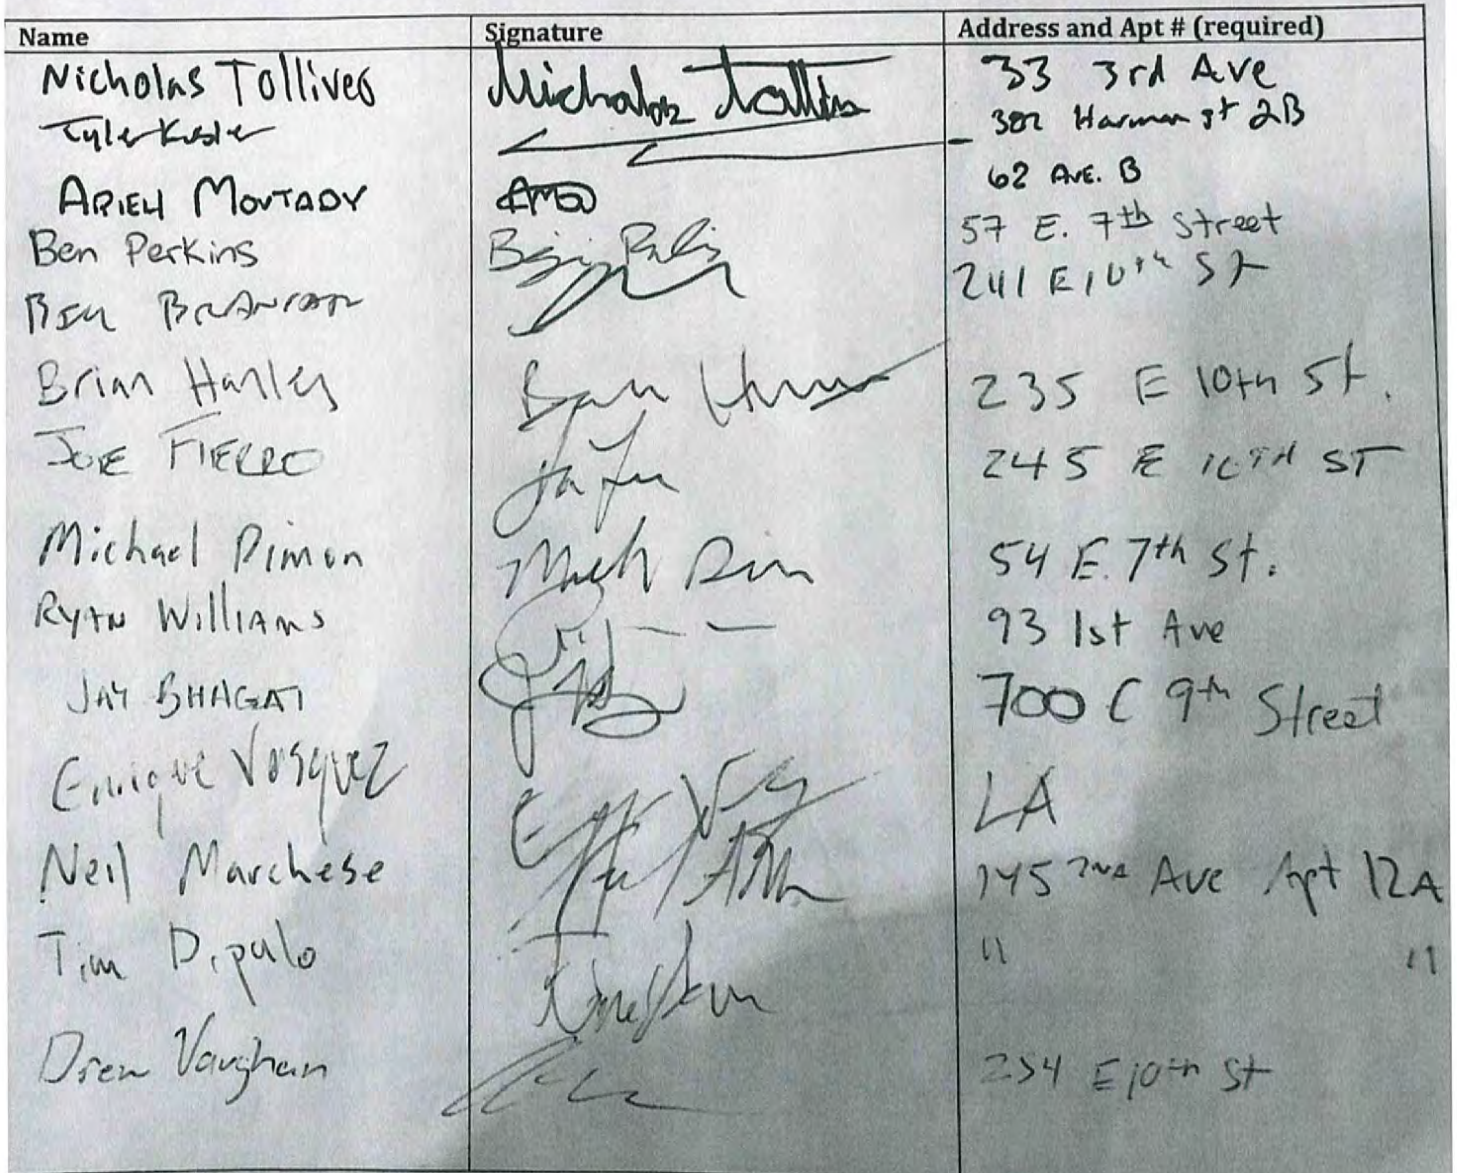 Name Signature Address and Apt # (required)
Nicholas Tolliver Nicholas Tolliver 33 3rd Ave
Tyler 382 Harman st 2B
ARIEH MOVTADY 62 AVE. B
Ben Perkins 57 E. 7th Street
BEN 241 E 10th St
Brian Hanley 235 E 10th St.
JOE FIERRO 245 E 10TH ST
Michael Dimon 54 E. 7th St.
RYAN WilliAms 93 1st Ave
JAY BHAGAT 700 C 9th Street
Enrique Vasquez LA
Neil Marchese 145 2nd Ave Apt 12A
Tim Dipalo " "
Drew Vaughan 234 E 10th St